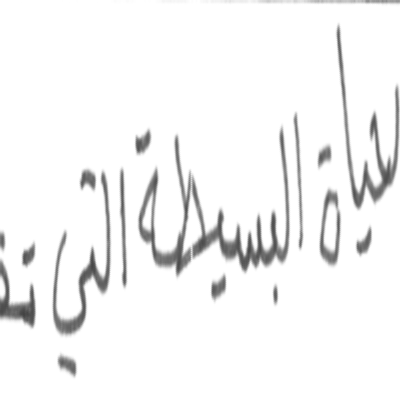 لحياة البسيطة التي تق